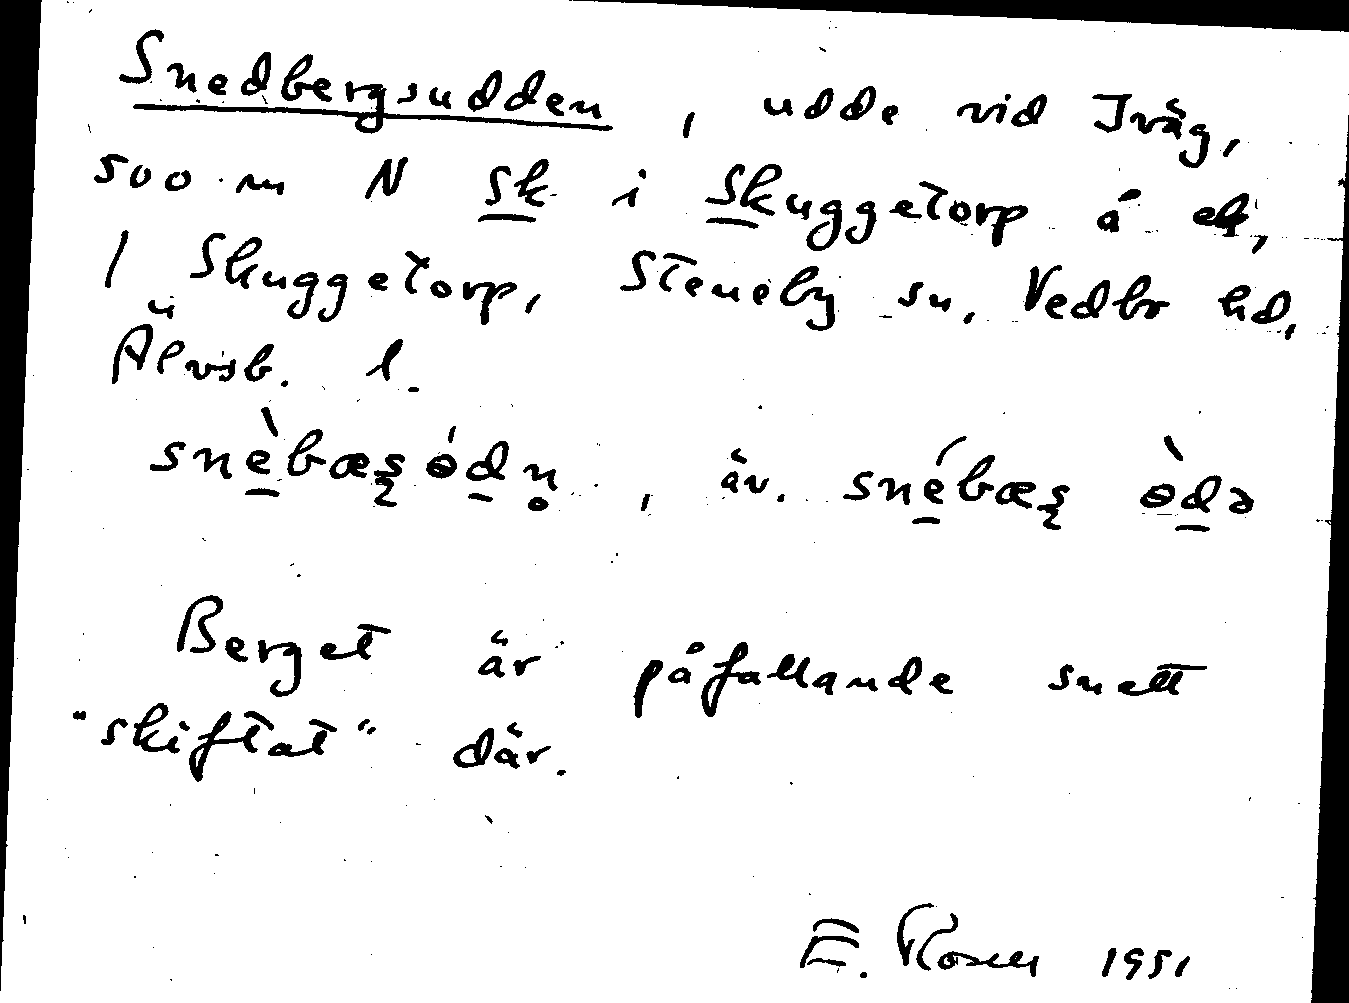 Snedbergsudden, udde vid Iväg,
500 m N Sk i Skuggetorp å ek,
1 Skuggetorp, Steneby sn, Vedbo hd,
Älvsb. l.
snèbæʂódn̥, äv. snébæʂ òdə
Berget är påfallande snett
"skiftat" där.
E. Rosell 1951